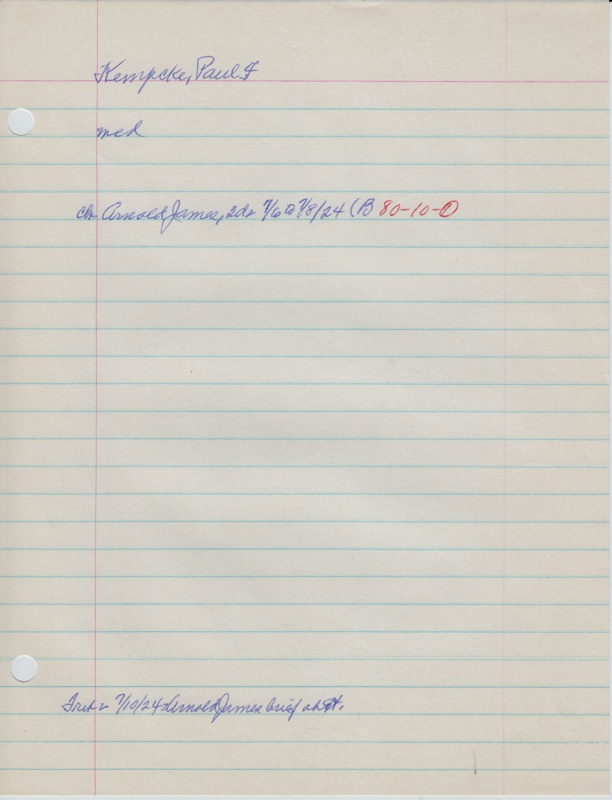 Kempcke, Paul F
med
ch Arnold James, 2da 7/6 @ 7/8/24 (B 80-10-0
7/10/24 Arnold James brief obit.